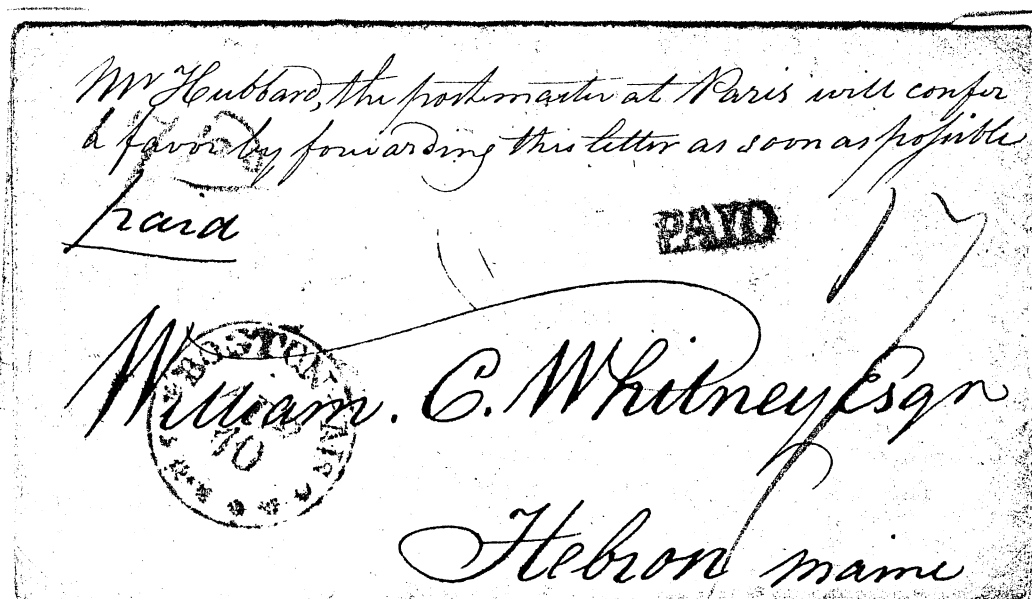 Mr Hubbard, the postmaster at Paris will confer
a favor by forwarding this letter as soon as possible
paid
PAID
17
BOSTON MS
10
William. C. Whitney Esqr
Hebron maine